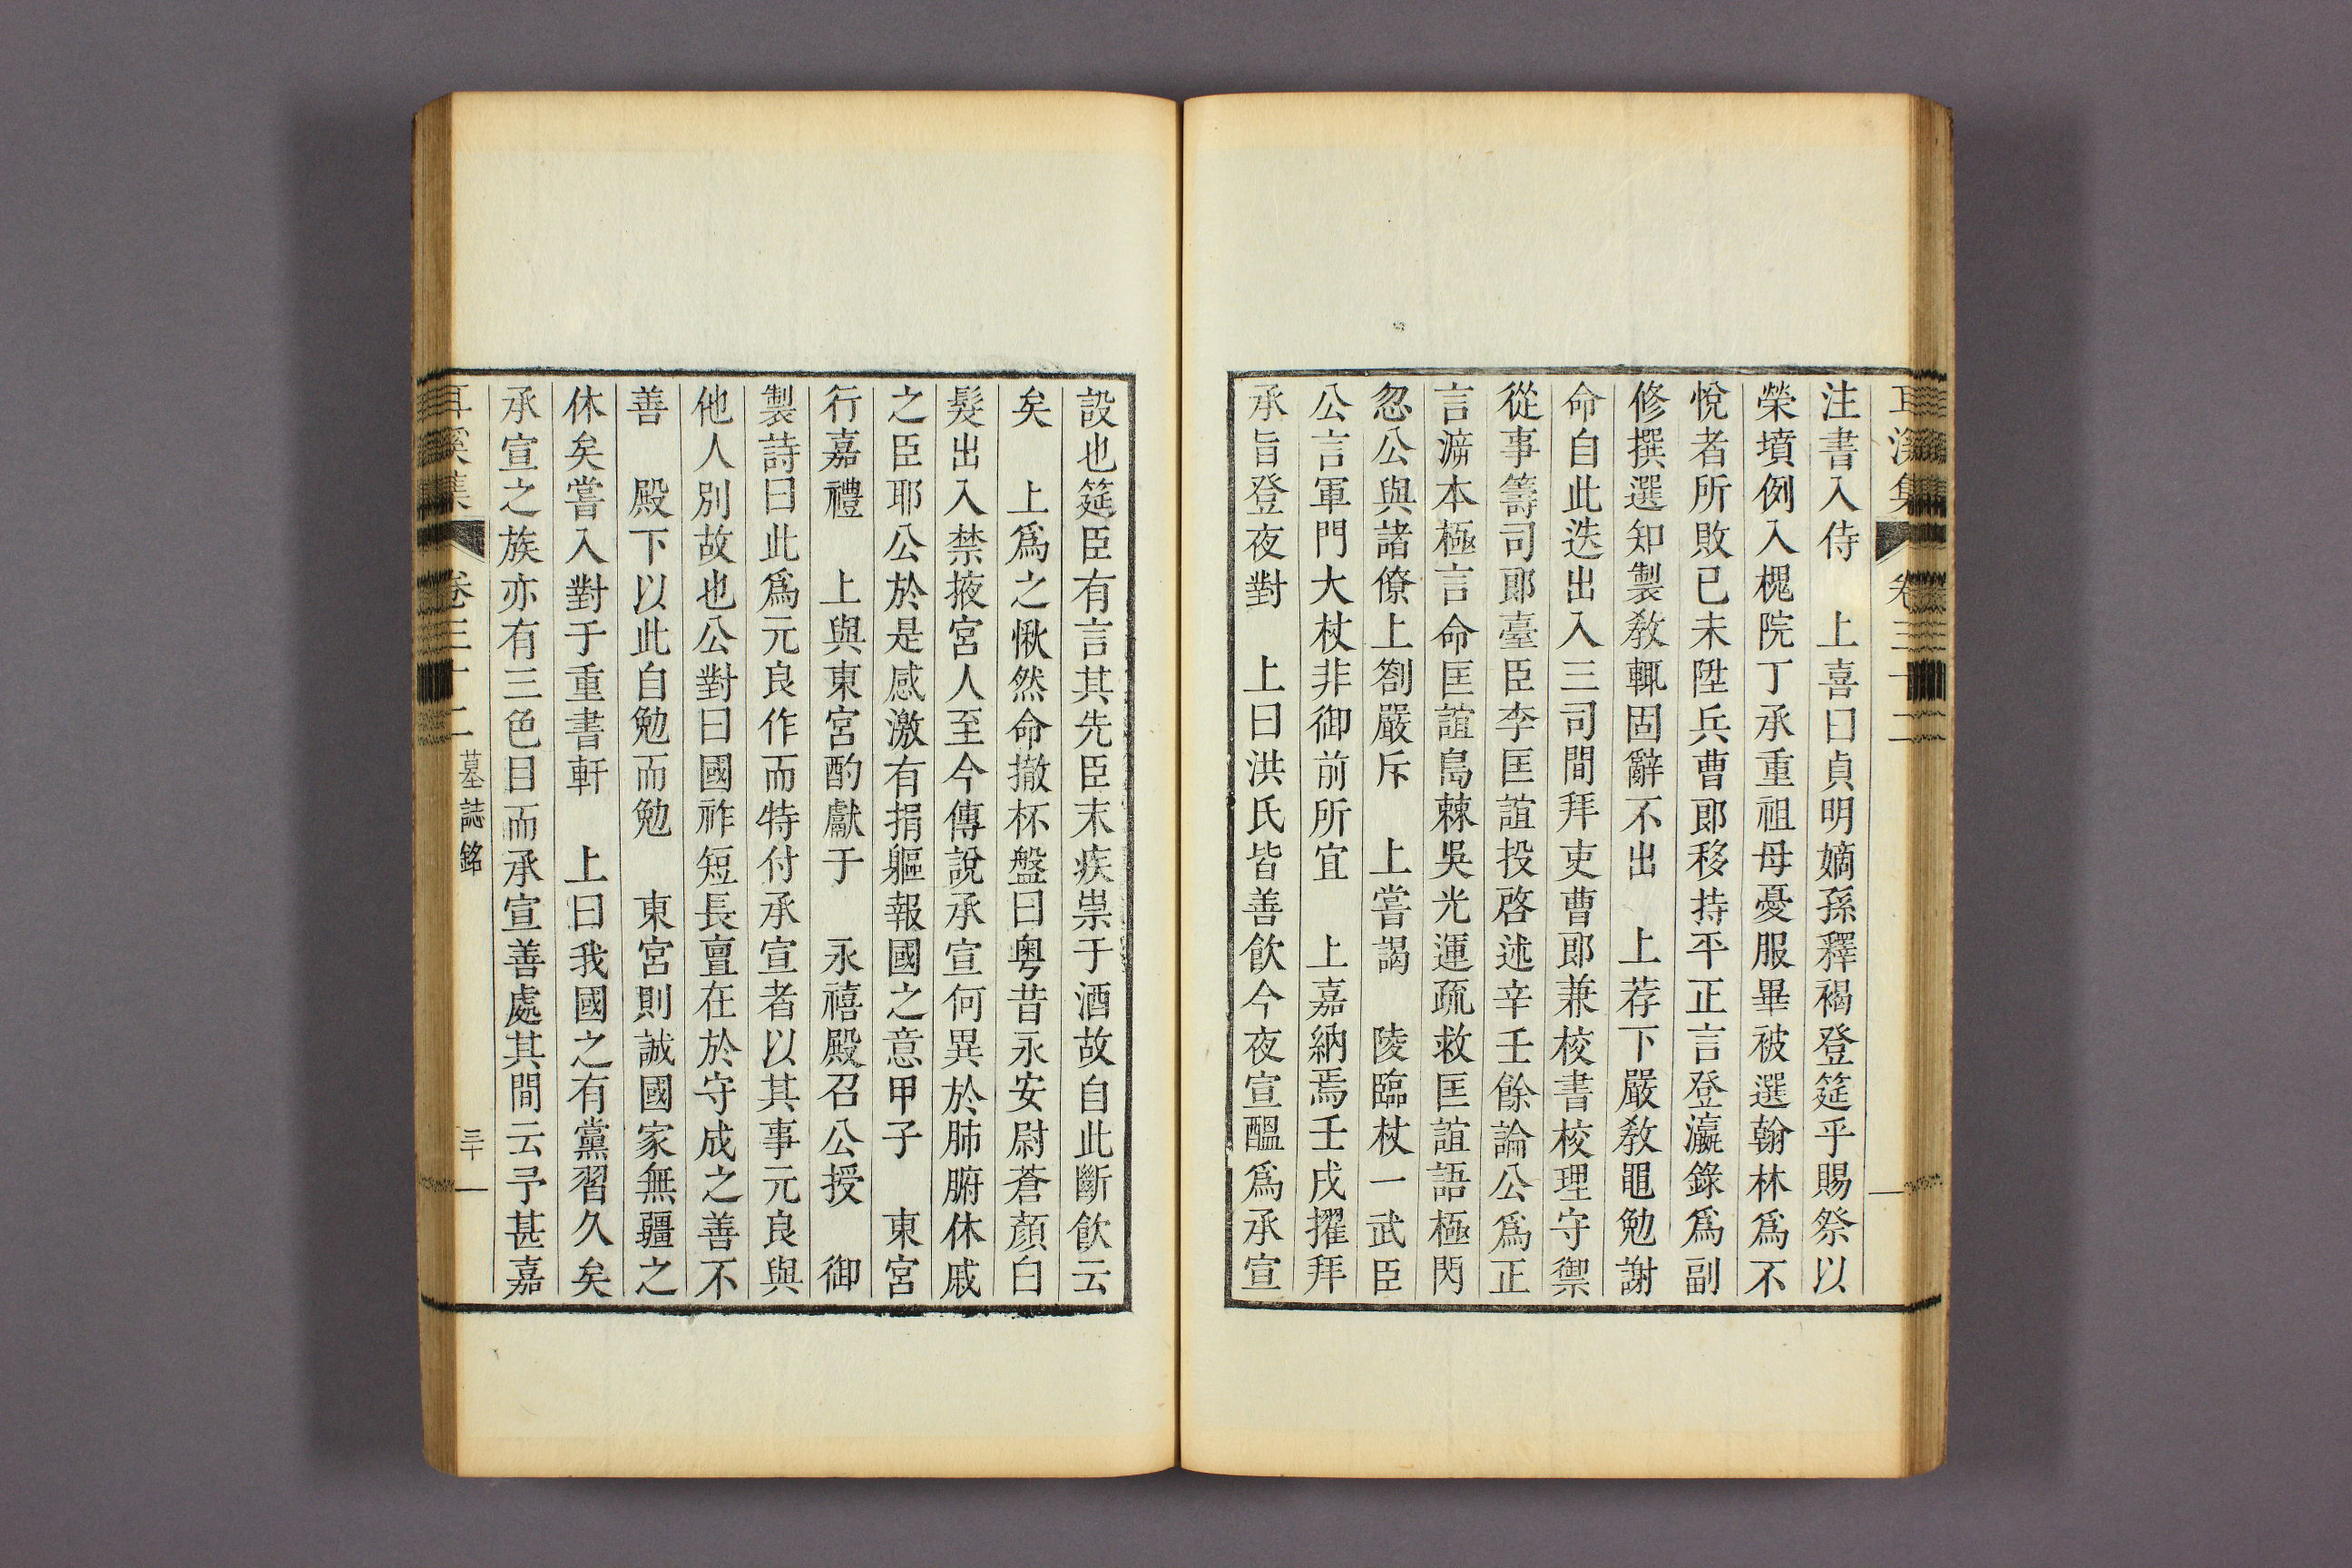 耳溪集 卷三十二
注書入侍 上喜曰貞明嫡孫釋褐登筵乎賜祭以
榮墳例入槐院丁承重祖母憂服畢被選翰林爲不
悅者所敗已未陞兵曹郞移持平正言登瀛錄爲副
修撰選知製敎輒固辭不出 上荐下嚴敎黽勉謝
命自此迭出入三司間拜吏曹郞兼校書校理守禦
從事籌司郞臺臣李匡誼投啓述辛壬餘論公爲正
言㴑本極言命匡誼島棘吳光運疏救匡誼語極閃
忽公與諸僚上劄嚴斥 上嘗謁 陵臨杖一武臣
公言軍門大杖非御前所宜 上嘉納焉壬戌擢拜
承旨登夜對 上曰洪氏皆善飮今夜宣醞爲承宣
設也筵臣有言其先臣末疾祟于酒故自此斷飮云
矣 上爲之愀然命撤杯盤曰粤昔永安尉蒼顏白
髮出入禁掖宮人至今傳說承宣何異於肺腑休戚
之臣耶公於是感激有捐軀報國之意甲子 東宮
行嘉禮 上與東宮酌獻于 永禧殿召公授 御
製詩曰此爲元良作而特付承宣者以其事元良與
他人別故也公對曰國祚短長亶在於守成之善不
善 殿下以此自勉而勉 東宮則誠國家無疆之
休矣嘗入對于重書軒 上曰我國之有黨習久矣
承宣之族亦有三色目而承宣善處其間云予甚嘉
耳溪集 卷三十二 墓誌銘 三十